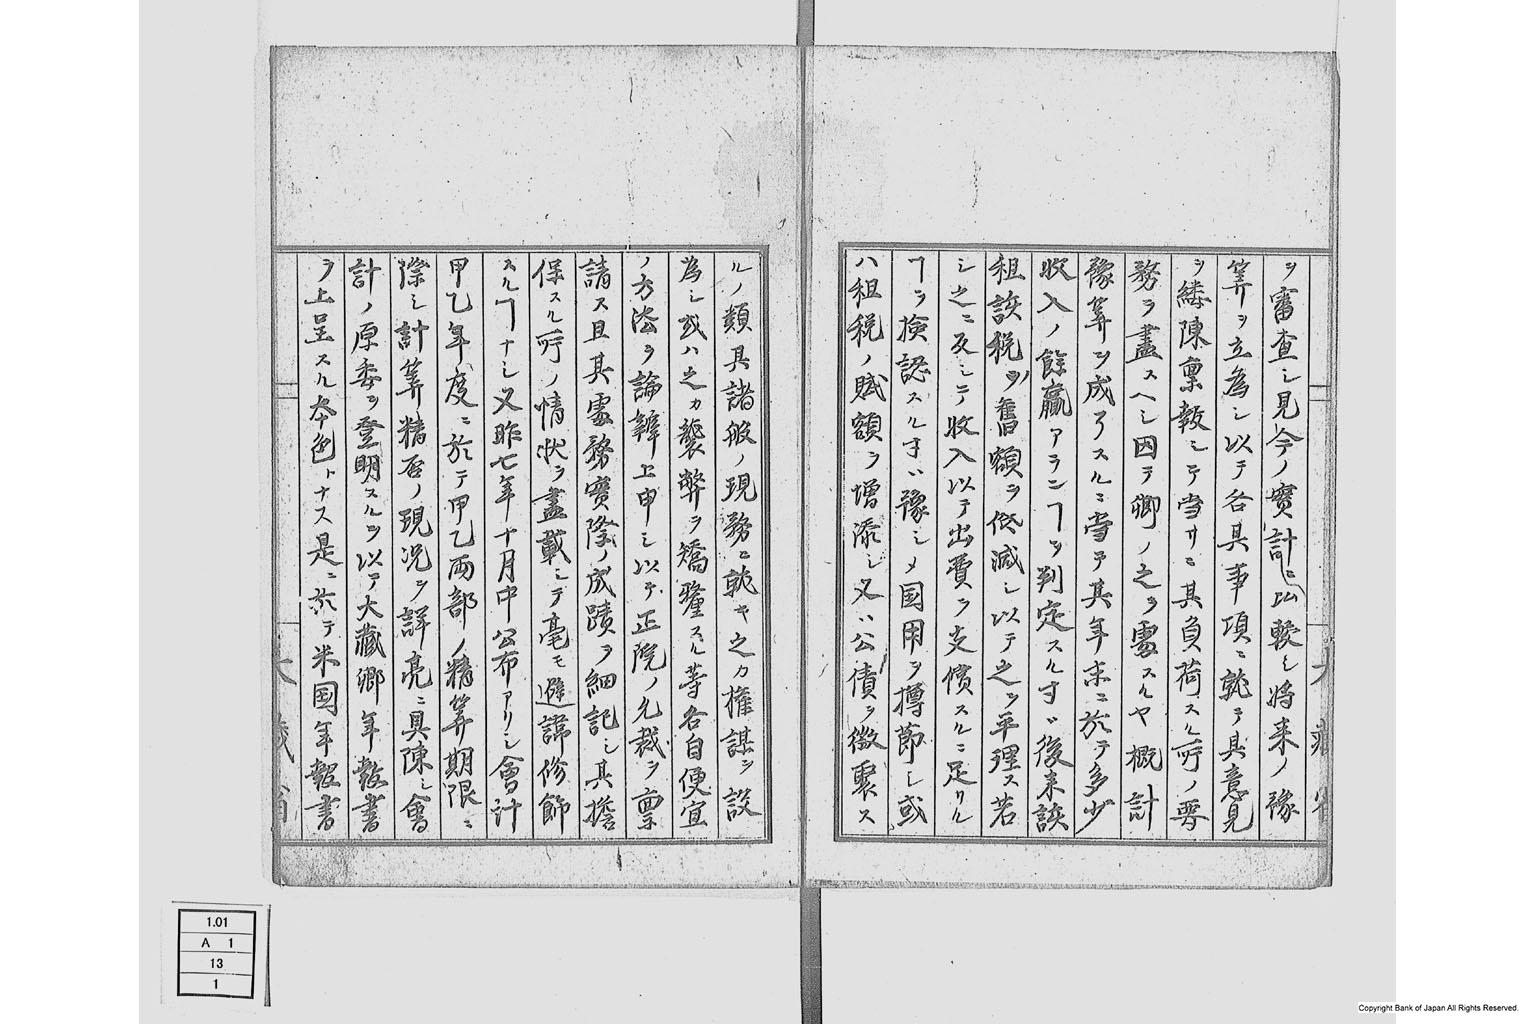 ヲ審査シ見今ノ實計ニ比較シ将来ノ豫
算ヲ立為シ以テ各其事項ニ就テ其意見
ヲ縷陳稟報シテ当サニ其負荷スル所ノ要
務ヲ盡スヘシ因テ卿ノ之ヲ處スルヤ概計
豫算ヲ成了スルニ当テ其年末ニ於テ多少
收入ノ餘贏アランヿヲ判定スル寸ハ後来該
租該税ノ舊額ヲ低減シ以テ之ヲ平理ス若
シ之ニ反シテ收入以テ出費ヲ支償スルニ足サル
ヿヲ検認スル寸ハ豫シメ国用ヲ撙節シ或
ハ租税ノ賦額ヲ増添シ又ハ公債ヲ徴聚ス
ルノ類其諸般ノ現務ニ就キ之カ權謀ヲ設
為シ或ハ之カ襲弊ヲ矯釐スル等各自便宜
ノ方法ヲ論辨上申シ以テ正院ノ允裁ヲ稟
請ス且其處務實際ノ成蹟ヲ細記シ其擔
保スル所ノ情状ヲ盡載シテ毫モ避諱修飾
スルヿナシ又昨七年十月中公布アリシ會計
甲乙年度ニ於テ甲乙両部ノ精算期限ニ
際シ計算精否ノ現況ヲ詳亮ニ具陳シ會
計ノ原委ヲ登明スルヲ以テ大藏卿年報書
ヲ上呈スル本色トナス是ニ於テ米国年報書
大藏省
1.01
A 1
13
1
Copyright Bank of Japan All Rights Reserved.